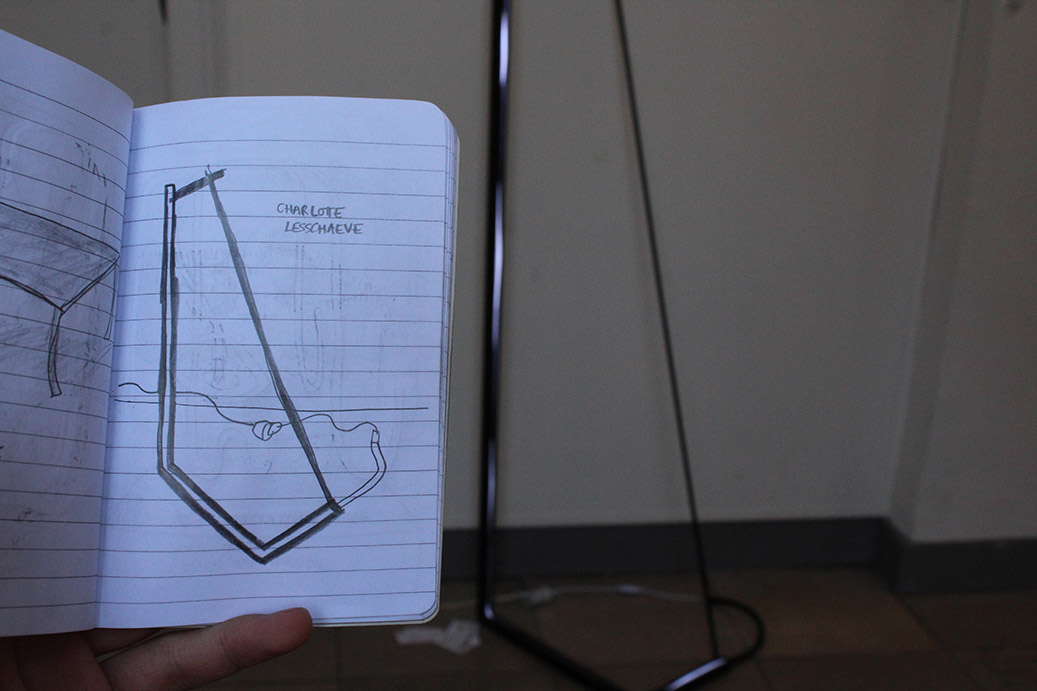 CHARLOTTE
LESSCHAEVE